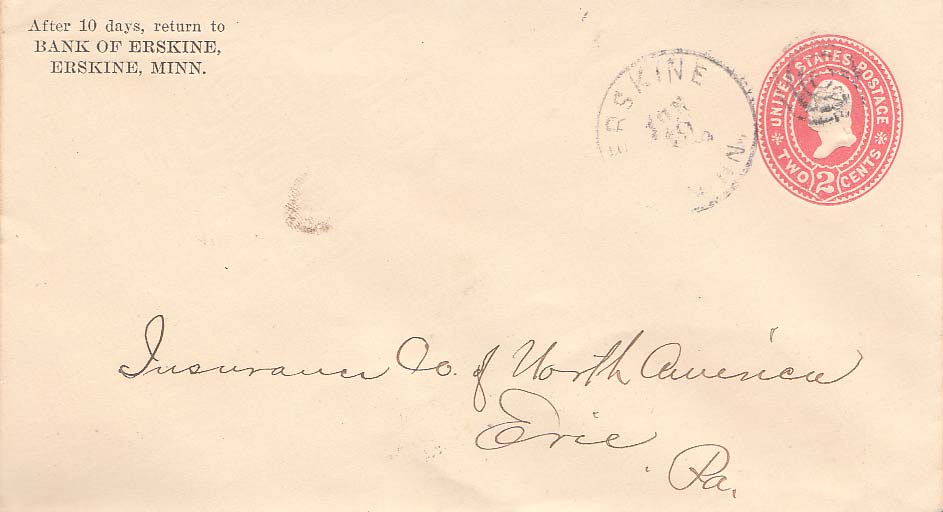 After 10 days, return to
BANK OF ERSKINE,
ERSKINE, MINN.
ERSKINE
UNITED STATES POSTAGE
TWO 2 CENTS
Insurance Co. of North America
Erie
Pa.